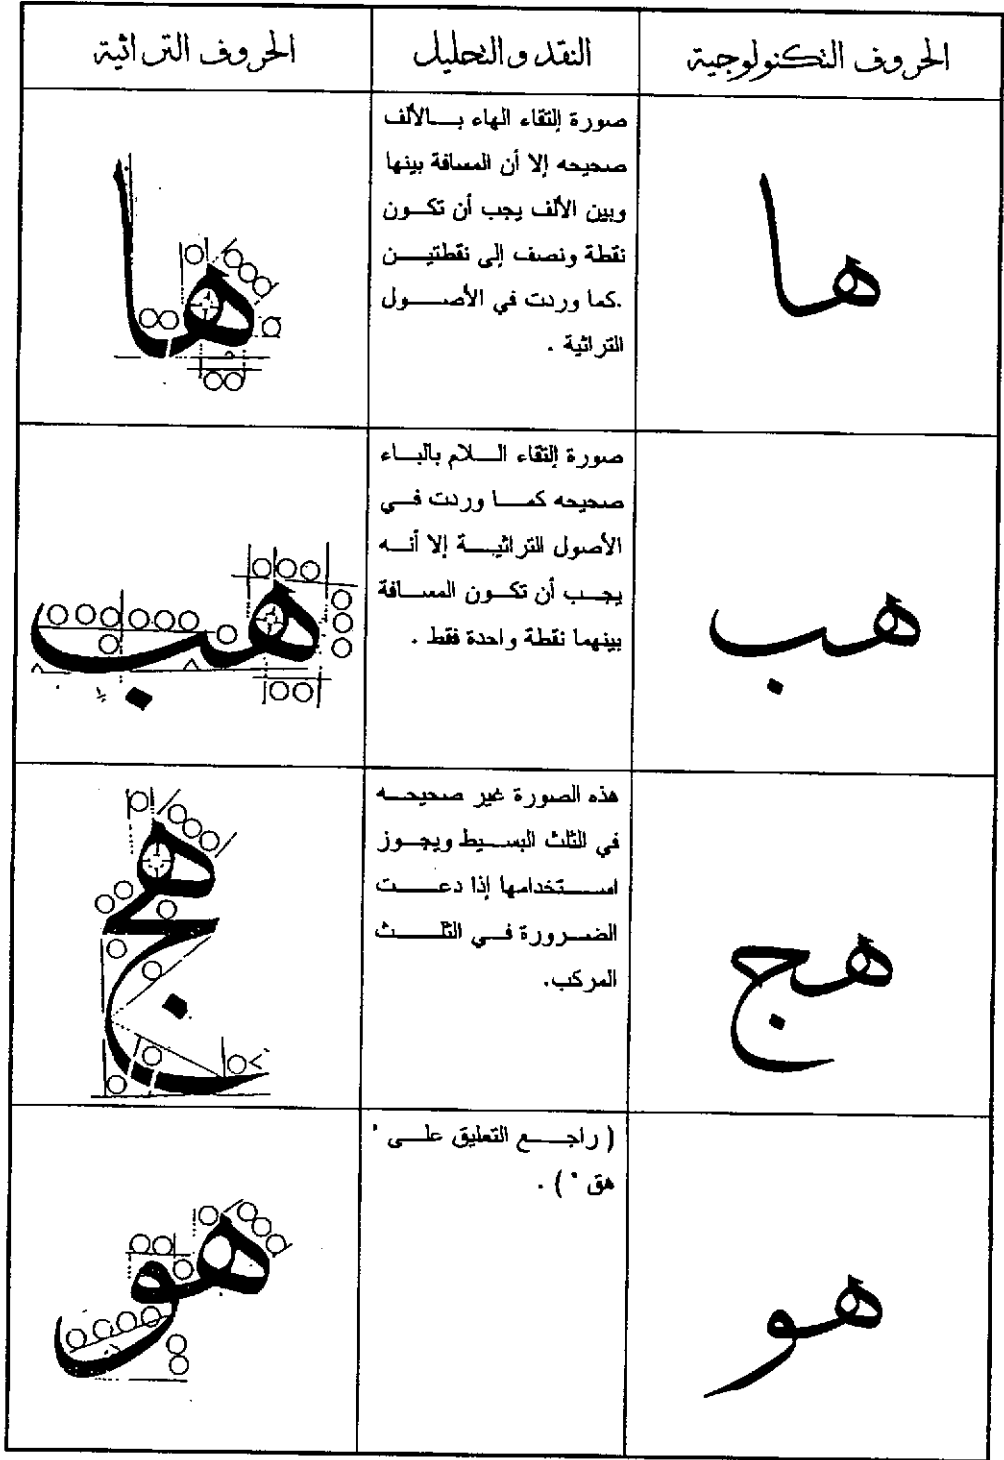 الحروف التكنولوجية
النقد والتحليل
الحروف التراثية
ها
صورة إلتقاء الهاء بالألف
صحيحه إلا أن المسافة بينها
وبين الألف يجب أن تكون
نقطة ونصف إلى نقطتين
.كما وردت في الأصول
التراثية .
ها
هب
صورة إلتقاء اللام بالباء
صحيحه كما وردت في
الأصول التراثية إلا أنه
يجب أن تكون المسافة
بينهما نقطة واحدة فقط .
هب
هج
هذه الصورة غير صحيحه
في الثلث البسيط ويجوز
استخدامها إذا دعت
الضرورة في الثلث
المركب.
هج
هو
( راجع التعليق على "
هق " ) .
هو